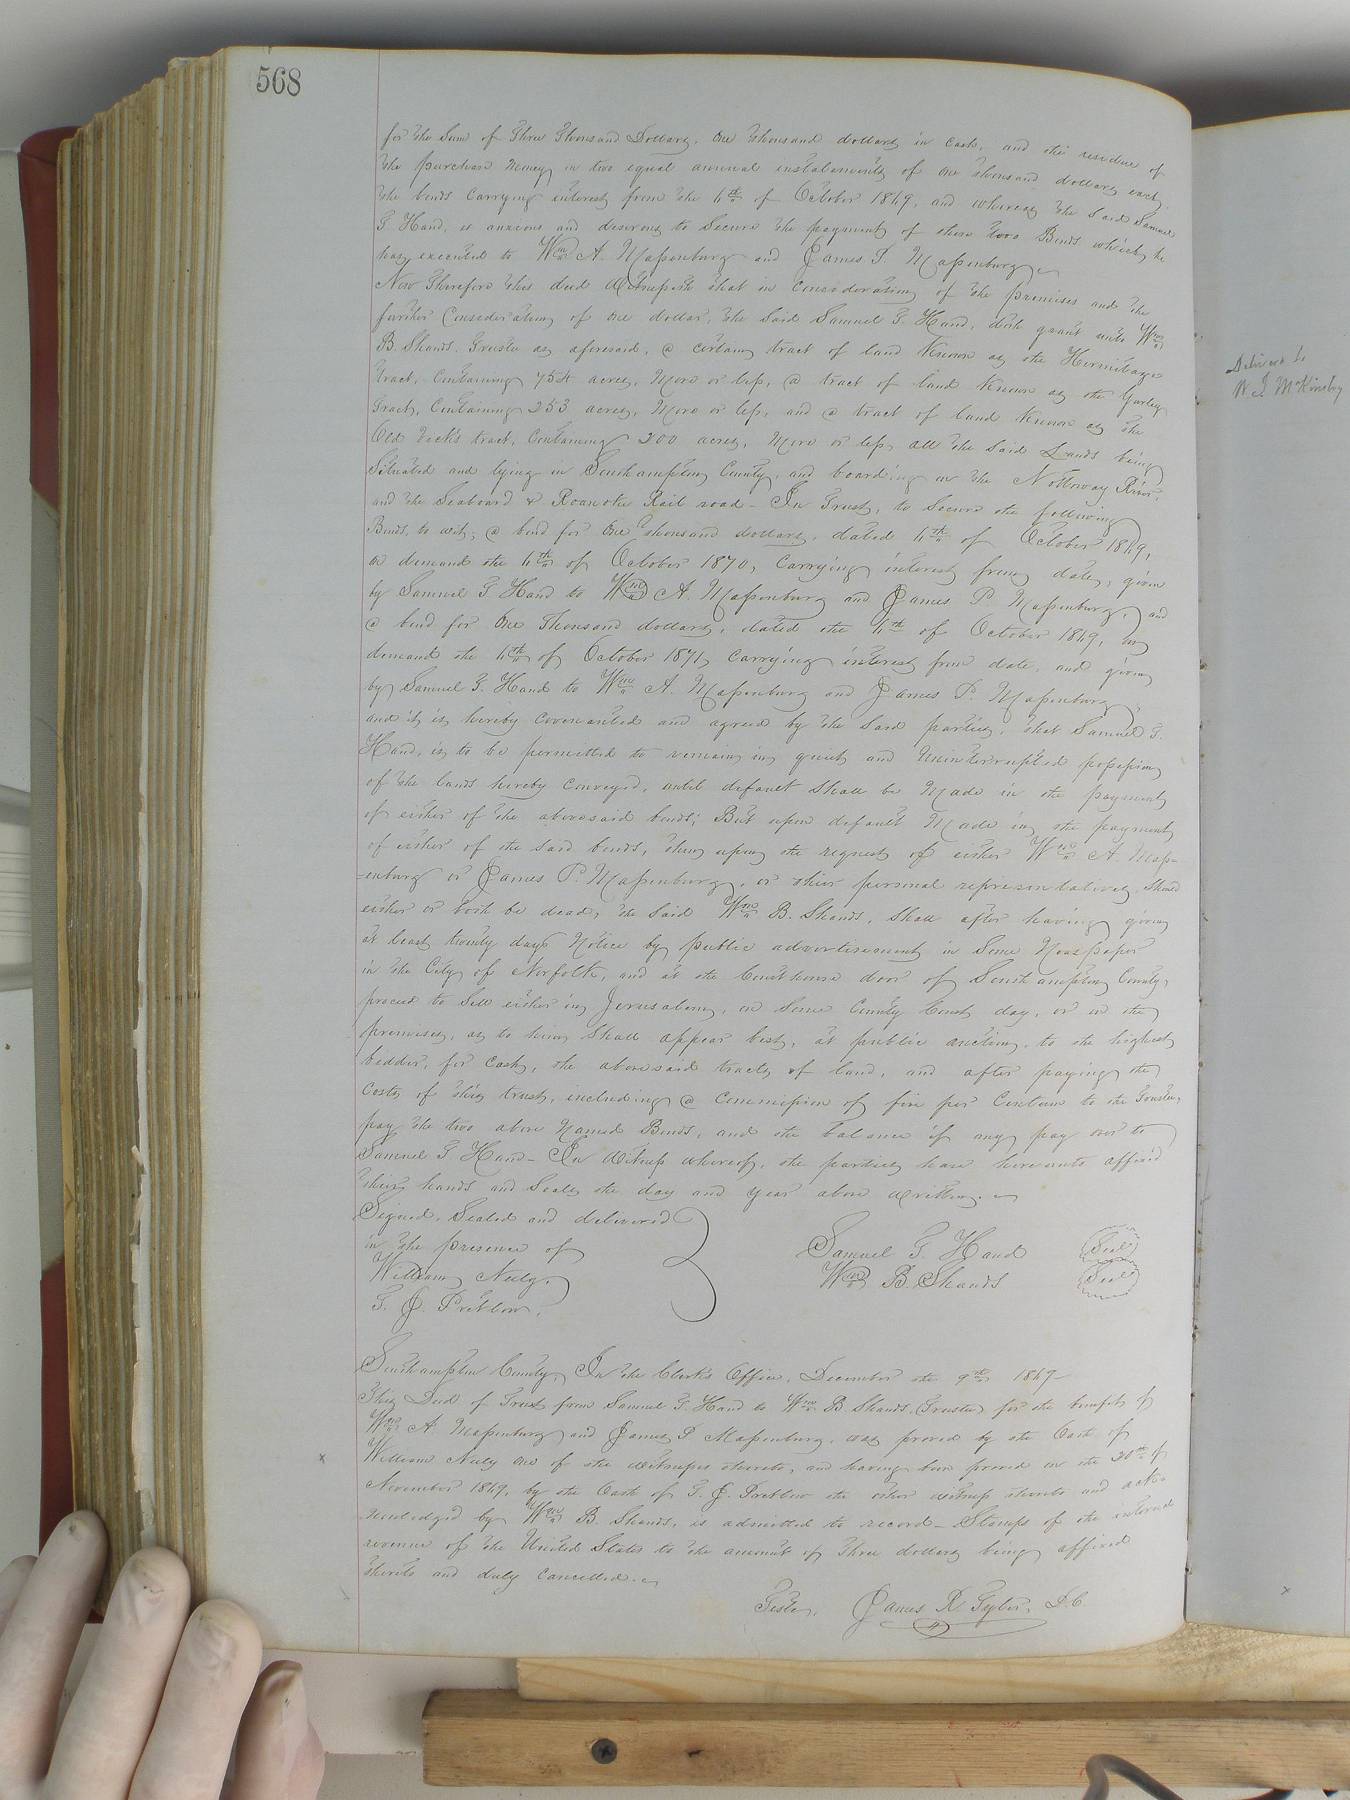 568
for the Sum of Three Thousand Dollars, One thousand dollars in Cash, and the residue of
the purchase Money in two equal annual instalments of One thousand dollars each,
the bonds Carrying interest from the 6th of October 1869, and whereas the Said Samuel
T. Hand, is anxious and desirous to Secure the payment of these two Bonds which he
has executed to Wm A. Massenburg and James P. Massenburg
Now Therefore this deed Witnesseth that in Consideration of the premises and the
further Consideration of One dollar, the Said Samuel T. Hand, doth grant unto Wm
B. Shands, Trustee as aforesaid, a certain tract of land Known as the Hermitage
tract, Containing 754 acres, More or less, a tract of land Known as the Gurley
Tract, Containing 253 acres, More or less, and a tract of land Known as the
Old tract, Containing 200 acres, More or less, all the Said Lands being
Situated and lying in Southampton County, and boarding on the Nottoway River,
and the Seaboard & Roanoke Rail road - In Trust, to Secure the following
Bonds, to wit; a bond for One thousand dollars, dated 6th of October 1869,
on demand the 6th of October 1870, Carrying interest from date, given
by Samuel T. Hand to Wm A. Massenburg and James P. Massenburg, and
a bond for One Thousand dollars, dated the 6th of October 1869, on
demand the 6th of October 1871, Carrying interest from date, and given
by Samuel T. Hand to Wm A. Massenburg and James P. Massenburg,
and it is hereby Covenanted and agreed by the Said parties, that Samuel T.
Hand, is to be permitted to remain in quiet and Uninterrupted possession
of the lands hereby Conveyed, until default Shall be Made in the payment
of either of the abovesaid bonds; But upon default Made in the payment
of either of the said bonds, then upon the request of either Wm A. Mass-
enburg or James P. Massenburg, or their personal representatives, Should
either or both be dead, the Said Wm B. Shands, Shall after having given
at least twenty days Notice by public advertisement in Some Newspaper
in the City of Norfolk, and at the Courthouse door of Southampton County,
proceed to Sell either in Jerusalem, on Some County Court day, or on the
premises, as to him Shall appear best, at public auction, to the highest
bidder, for Cash, the abovesaid tracts of land, and after paying the
Costs of this trust, including a Commission of five per Centum to the Trustee,
pay the two above Named Bonds, and the balance if any pay over to
Samuel T. Hand - In Witness whereof, the parties have hereunto affixed
their hands and Seals the day and year above written.
Signed, Sealed and delivered
in the presence of
William Neely.
T. J. Pretlow.
Samuel T. Hand Seal
Wm B. Shands Seal
Southampton County, In the Clerk's Office, December the 9th 1869
This Deed of Trust from Samuel T. Hand to Wm B. Shands, Trustee for the benefit of
Wm A. Massenburg and James P Massenburg, was proved by the Oath of
William Neely one of the Witnesses thereto, and having been proved on the 20th of
November 1869, by the Oath of T. J. Pretlow the other witness thereto and ack-
nowledged by Wm B. Shands, is admitted to record - Stamps of the internal
revenue of the United States to the amount of Three dollars being affixed
thereto and duly Cancelled.
Teste, James R. Tyler, D.C.
Delivered to
W. J. McKinsey